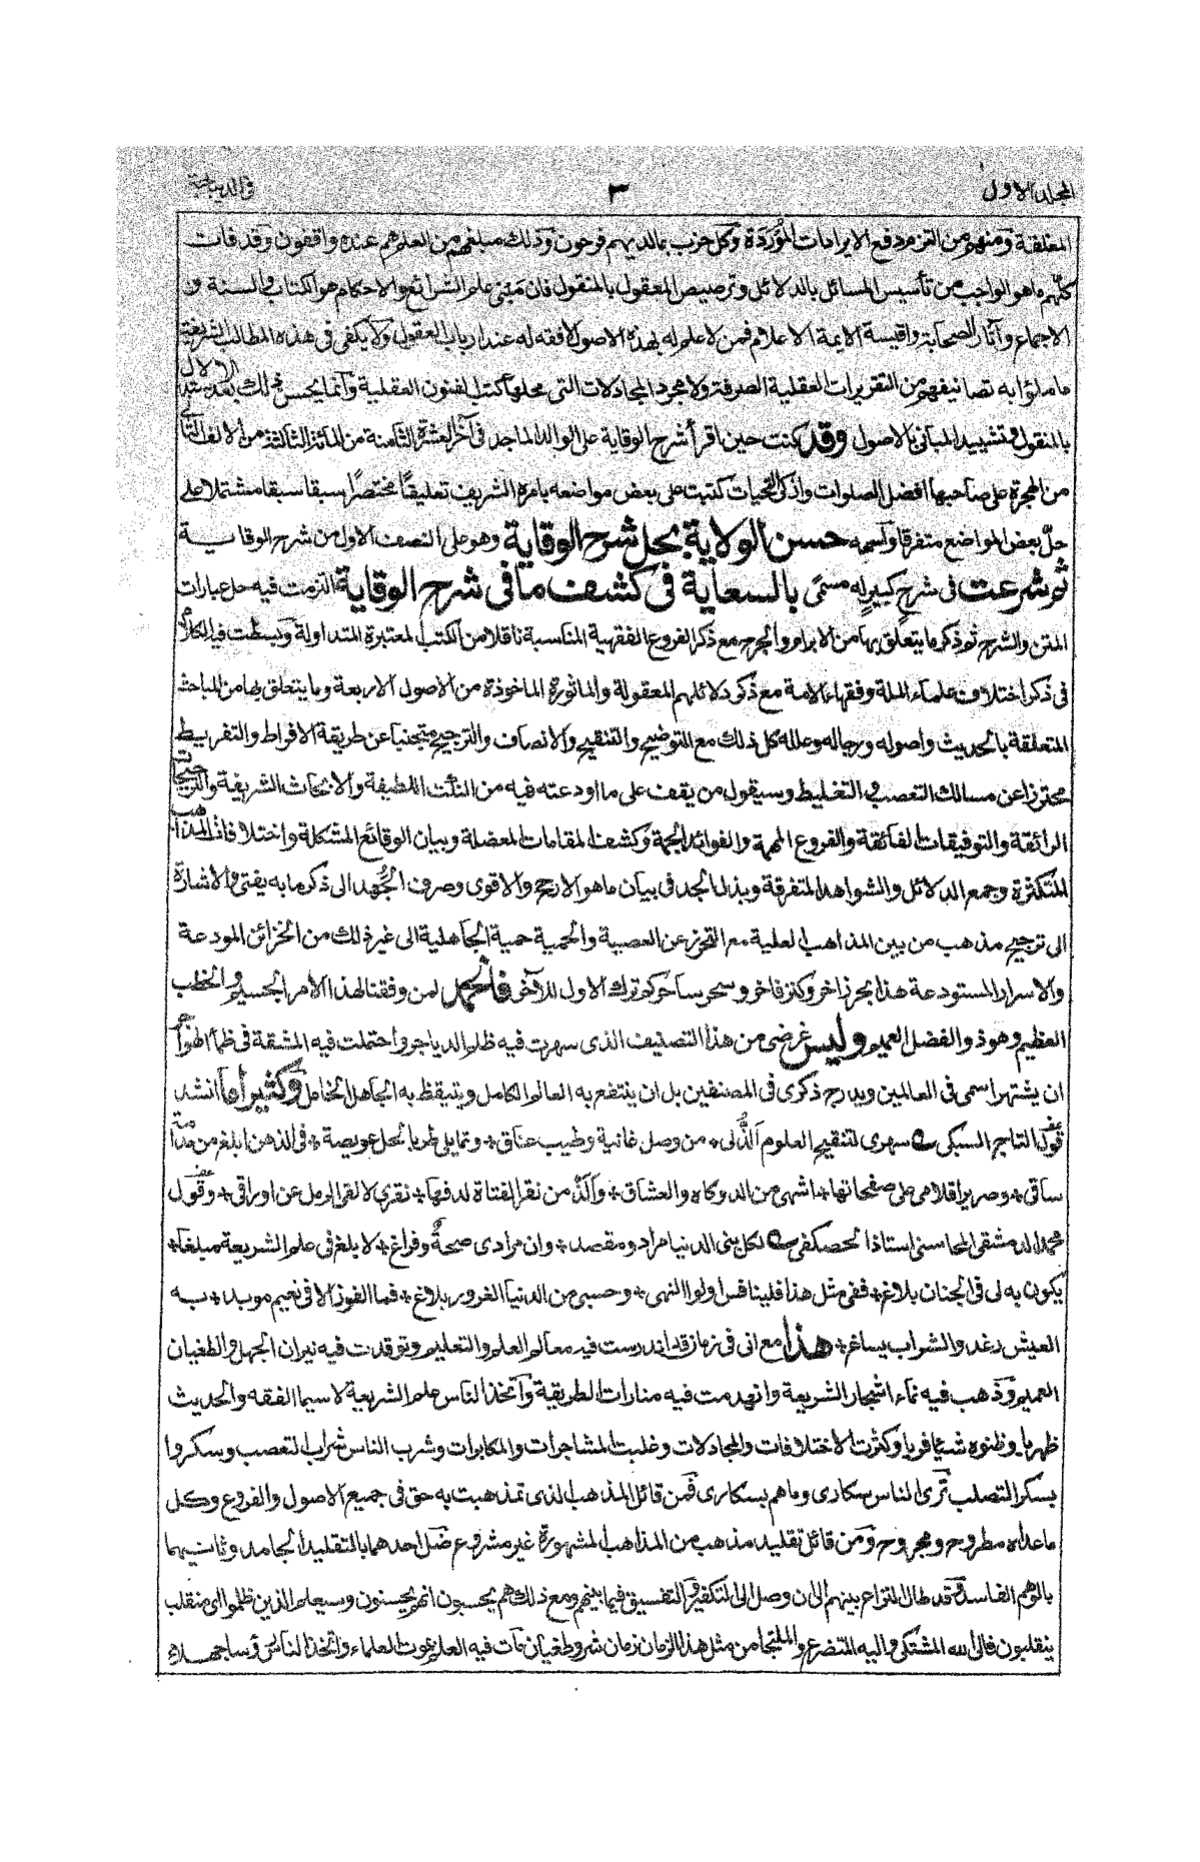 المجلد الاول ٣ فی الدیباجة
المغلقة ومنهم من التزم دفع الايرادات المُوْرَدَة وكل حزب بما لديهم فرحون وذلك مبلغهم من العلم هم عنده واقفون وقد فات
كلهم ما هو الواجب من تأسيس المسائل بالدلائل وترصيص المعقول بالمنقول فان مَبْنى علم الشرائع والاحكام هو الكتاب والسنة و
الاجماع وآثار الصحابة واقيسة الايمة الاعلام فمن لا علم له بهذه الاصول لا فقه له عند ارباب العقول ولا يكفى فى هذه المطالب الشريفة
ما ملؤا به تصانيفهم من التقريرات العقلية الصرفة ولا مجرد المجادلات التى محلها كتب الفنون العقلية وانما يحسن ذلك بعد ستد الاستدلال
بالمنقول وتشييد المبانى بالاصول وقد كنت حين اقرأ شرح الوقاية على الوالد الماجد فى آخر العشرة الثامنة من المائة الثالثة من الالف الثانى
من الهجرة على صاحبها افضل الصلوات وازكى التحيات كتبت على بعض مواضعه بامره الشريف تعليقًا مختصرًا سبقا سبقا مشتملا على
حلّ بعض المواضع متفرقا واسمه حسن الولاية بحل شرح الوقاية وهو على النصف الاول من شرح الوقاية
ثم شرعت فى شرحٍ كبيرٍ له مسمًى بالسعاية فى كشف ما فى شرح الوقاية التزمت فيه حل عبارات
المتن والشرح ثم ذكر ما يتعلق بها من الابرام والجرح مع ذكر الفروع الفقهية المناسبة ناقلا من الكتب المعتبرة المتداولة وبسطت فيه الكلام
فى ذكر اختلاف علماء الملة وفقهاء الامة مع ذكر دلائلهم المعقولة والماثورة الماخوذة من الاصول الاربعة وما يتعلق بها من المباحث
المتعلقة بالحديث واصوله ورجاله وعلله كل ذلك مع التوضيح والتنقيح والانصاف والترجيح متجنبا عن طريقة الافراط والتفريط
محترزا عن مسالك التعصب والتغليط وسيقول من يقف على ما اودعته فيه من النكت اللطيفة والابحاث الشريفة والترجيحات
الرائقة والتوفيقات الفائقة والفروع المهمة والفوائد الجمة وكشف المقامات المعضلة وبيان الوقائع المشكلة واختلافات المذاهب
المتكثرة وجمع الدلائل والشواهد المتفرقة وبذل الجد فى بيان ما هو الارجح والاقوى وصرف الجُهد الى ذكر ما به يفتى والاشارة
الى ترجيح مذهب من بين المذاهب العلية مع التحرز عن العصبية والحمية حمية الجاهلية الى غير ذلك من الخزائن المودعة
والاسرار المستودعة هذا بحر زاخر وكنز فاخر وسحر ساحر كم ترك الاول للآخر فالحمد لمن وفقنا لهذا الامر الجسيم والخطب
العظيم وهو ذو الفضل العميم وليس غرضى من هذا التصنيف الذى سهرت فيه ظلم الدياجر واحتملت فيه المشقة فى ظمأ الهواجر
ان يشتهر اسمى فى العالمين ويدرج ذكرى فى المصنفين بل ان ينتفع به العالم الكامل ويتيقظ به الجاهل الخامل وكثيرا ما انشد
قول التاج السبكى سهرى لتنقيح العلوم الذُّ لى * من وصل غانية وطيب عناق * وتمايلى طربا لحل عويصة * فى الذهن ابلغ من مدامة
ساقى * وصرير اقلامى على صفحاتها * اشهى من الدوكاه والعشاق * والذُّ من نقر الفتاة لدفها * نقرى لالقى الرمل عن اوراقى * وقول بعض
محمد الدمشقى المحاسنى استاذ الحصكفى لكل بنى الدنيا مراد ومقصد * وان مرادى صحةٌ وفراغ * لا بلغ فى علم الشريعة مبلغا *
يكون به لى فى الجنان بلاغ * ففى مثل هذا فلينافس اولوا النهى * وحسبى من الدنيا الغرور بلاغ * فما الفوز الا فى نعيم موبد * به
العيش رغد والشراب يساغ * هذا مع انى فى زمان قد اندرست فيه معالم العلم والتعليم وتوقدت فيه نيران الجهل والطغيان
العميم وذهب فيه نماء اشجار الشريعة وانهدمت فيه منارات الطريقة واتخذ الناس علم الشريعة لا سيما الفقه والحديث
ظهريا وظنوه شيئا فريا وكثرت الاختلافات والمجادلات وغلبت المشاجرات والمكابرات وشرب الناس شراب التعصب وسكروا
بسكر التصلب ترى الناس سكارى وما هم بسكارى فمن قائل المذهب الذى تمذهبت به حق فى جميع الاصول والفروع وكل
ما عداه مطروح ومجروح ومن قائل تقليد مذهب من المذاهب المشهورة غير مشروع ضل احدهما بالتقليد الجامد وثانيهما
بالوهم الفاسد وقد طال النزاع بينهم الى ان وصل الى التكفير والتفسيق فيما بينهم ومع ذلك هم يحسبون انهم يحسنون وسيعلم الذين ظلموا اى منقلب
ينقلبون فالى الله المشتكى واليه المتضرع والملتجا من مثل هذا الزمان زمان شر وطغيان مات فيه العلم بموت العلماء واتخذ الناس رؤسا جهلاء